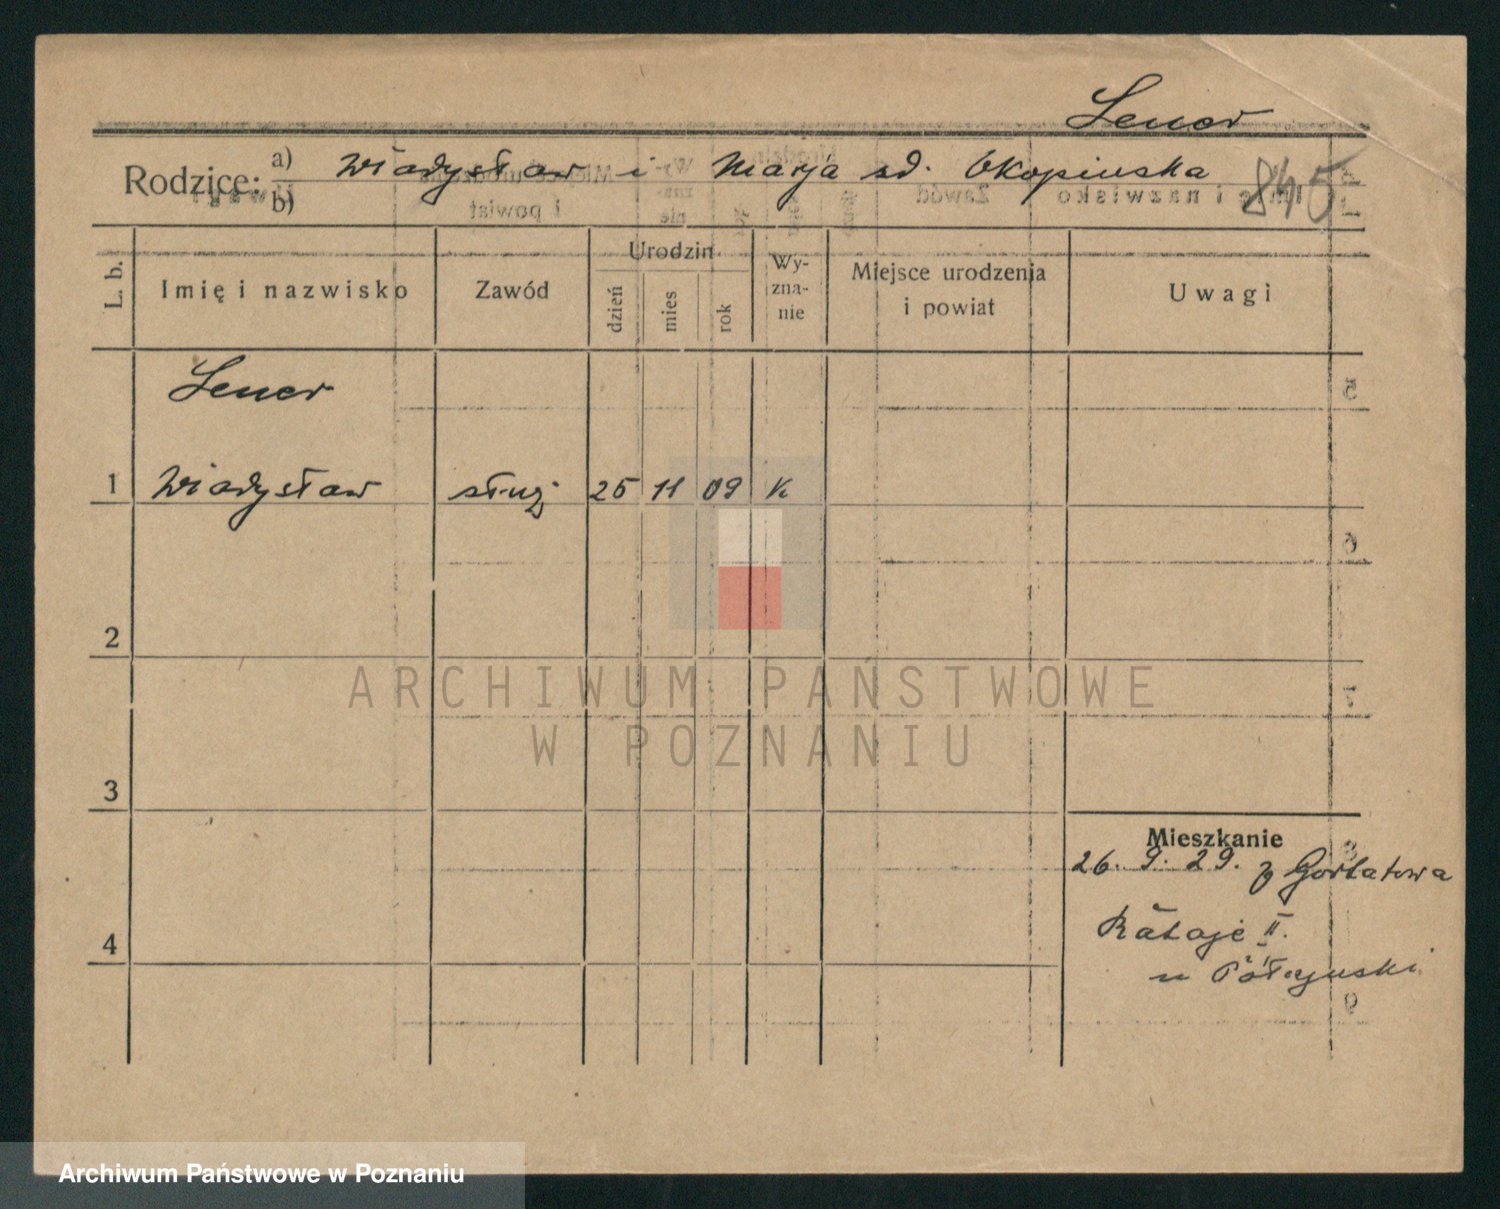 Lener
Rodzice: a) Władysław i Marja sd. Okopinska
b)
845
L. b.
Imię i nazwisko
Zawód
Urodzin
dzień
mies
rok
Wy-
zna-
nie
Miejsce urodzenia
i powiat
Uwagi
Lener
1 Władysław służ 25 11 09 K
2
3
4
Mieszkanie
26. 9. 29. z Gortatowa
Rataje II.
u Półczynski
ARCHIWUM PAŃSTWOWE
W POZNANIU
Archiwum Państwowe w Poznaniu